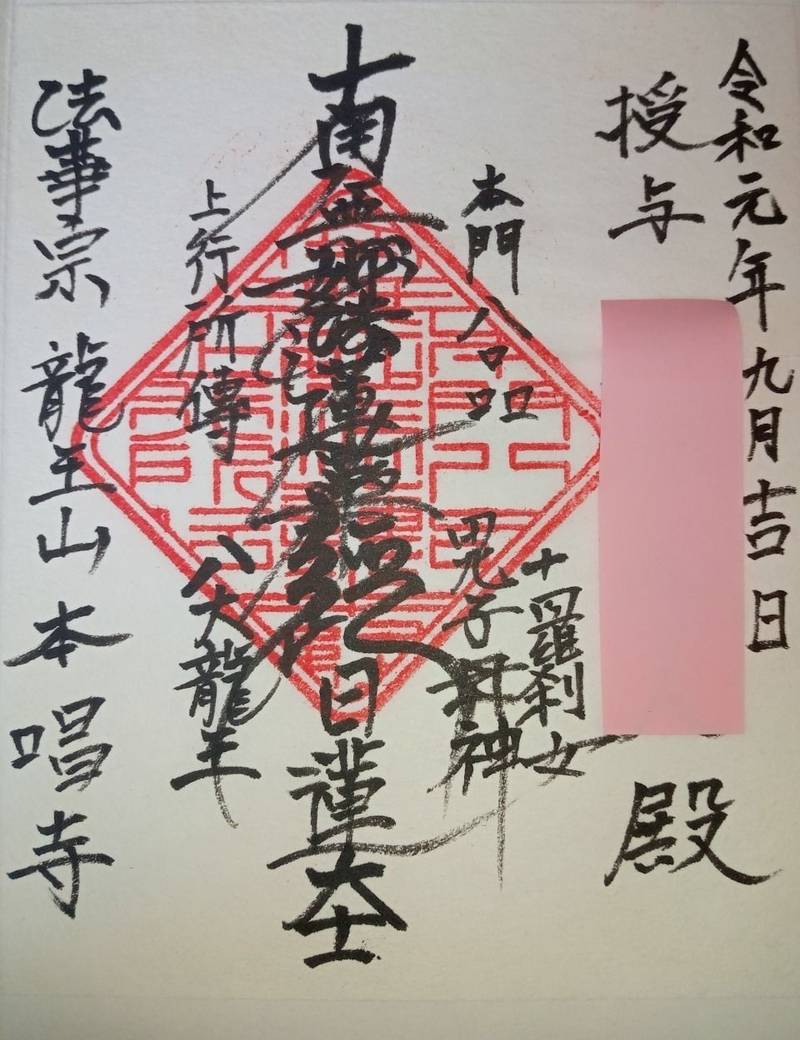 令和元年九月吉日
授与
殿
本門八品
十羅刹女
鬼子母神
南無妙法蓮華經 日蓮大士
上行所傳
八大龍王
法華宗 龍王山 本唱寺